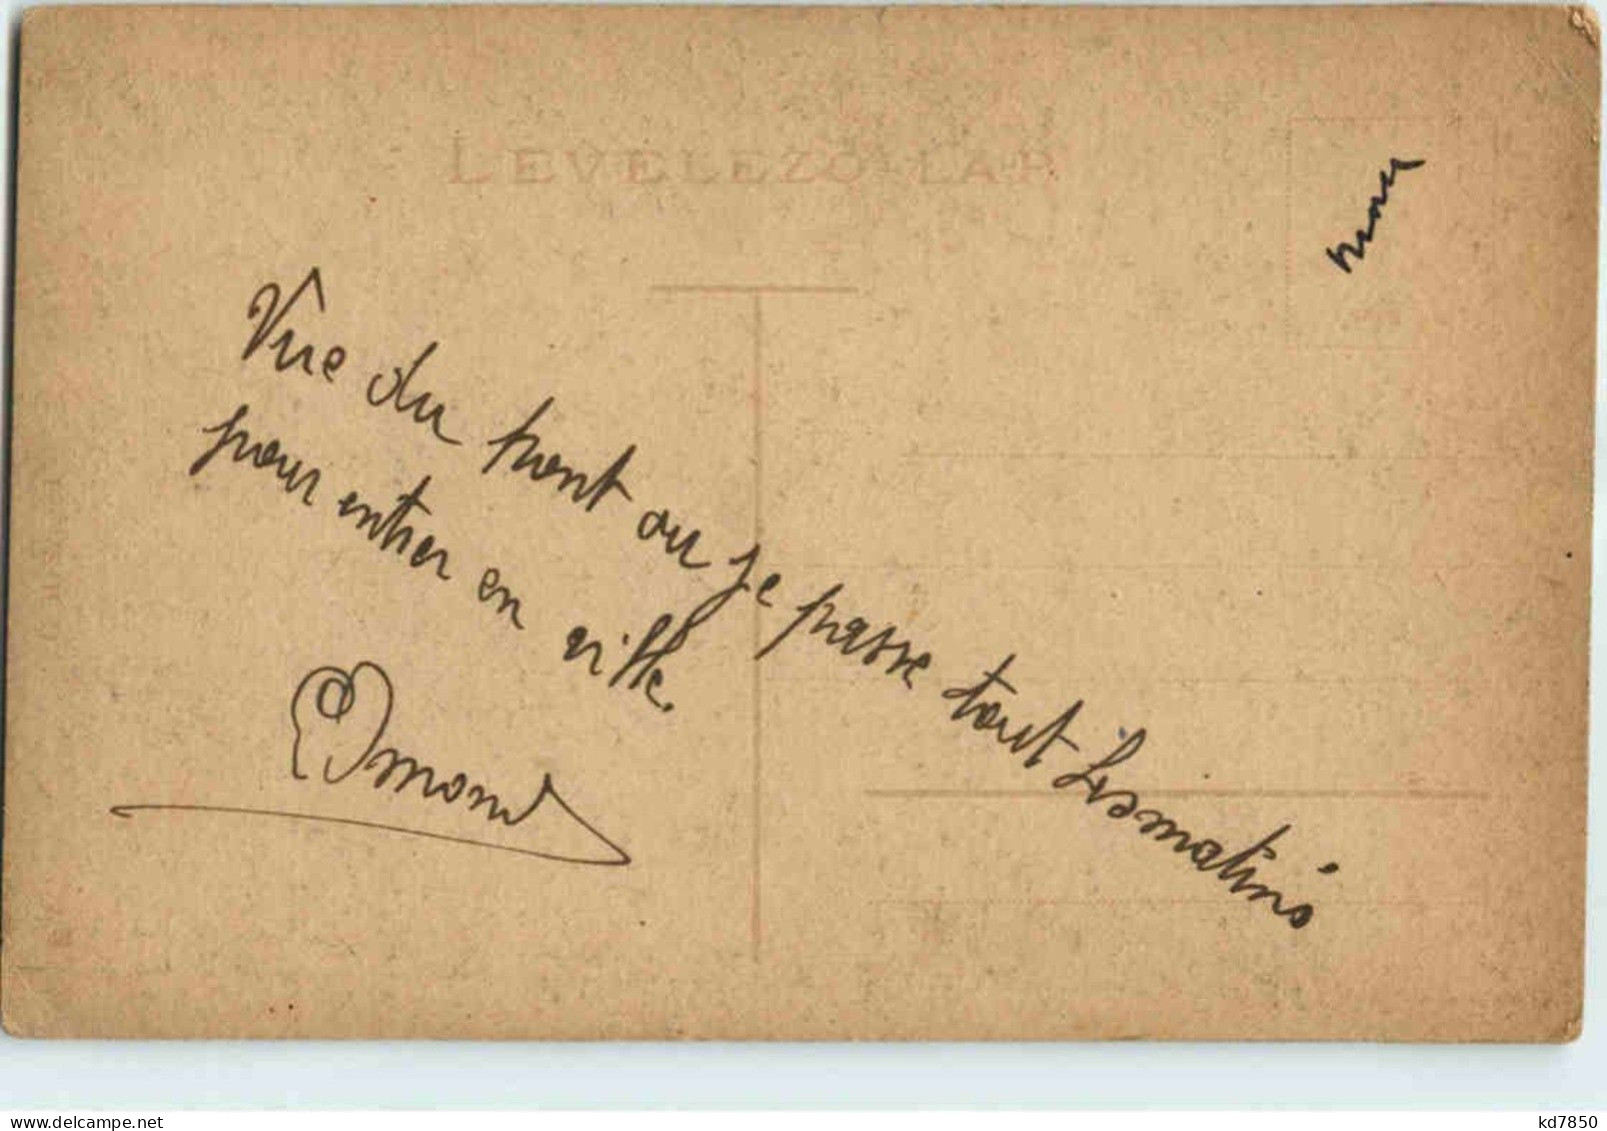 LEVELEZŐ-LAP
Vue du pont ou je passe tout les matins
pour entrer en ville.
Edmond
delcampe.net
kd7850